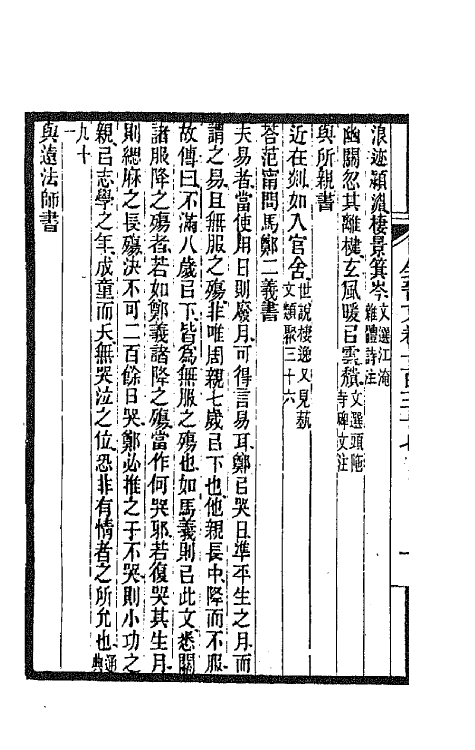 浪迹潁湄棲景箕岑文選江淹雜體詩注
幽關忽其離楗玄風暖㠯雲頹文選頭陁寺碑文注
與所親書
近在剡如入官舍世說棲逸又見蓺文類聚三十六
荅范甯問馬鄭二義書
夫易者當使用日則廢月可得言易耳鄭㠯哭日準平生之月而
謂之易且無服之殤非唯周親七歲㠯下也他親長中降而不服
故傳曰不滿八歲㠯下皆爲無服之殤也如馬義則㠯此文悉關
諸服降之殤者若如鄭義諸降之殤當作何哭邪若復哭其生月
則緦麻之長殤決不可二百餘日哭鄭必推之于不哭則小功之
親㠯志學之年成童而夭無哭泣之位恐非有情者之所允也通典
九十一
與遠法師書